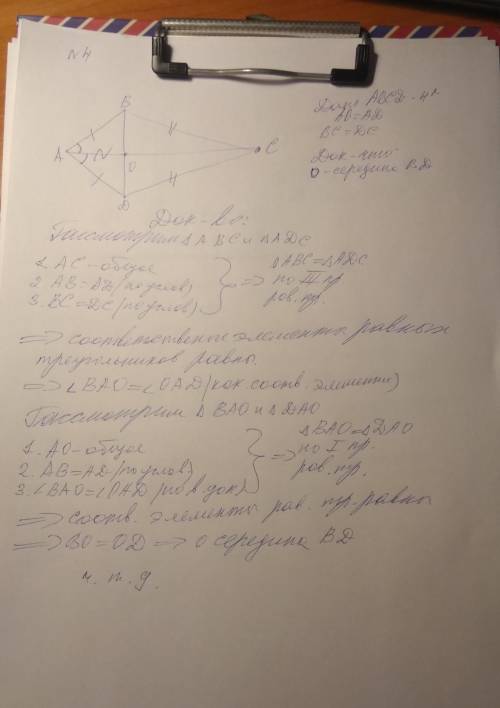 N4
Дано: ABCD - 4
AB=AD
BC=DC
Док-ать
O-середина BD
B
A
C
O
D
Док-во:
Рассмотрим △ABC и △ADC
1. AC - общая
2. AB=AD (по услов)
3. BC=DC (по услов)
=> △ABC=△ADC
по III пр
рав. тр.
=> соответственые элементы равных
треугольников равны.
=> ∠BAO=∠OAD (как соотв. элементы)
Рассмотрим △BAO и △DAO
1. AO - общая
2. AB=AD (по услов)
3. ∠BAO=∠OAD (по в. док)
=> △BAO=△DAO
по I пр.
рав. тр.
=> соотв. элементы рав. тр. равны
=> BO=OD => O середина BD
ч. т. д.